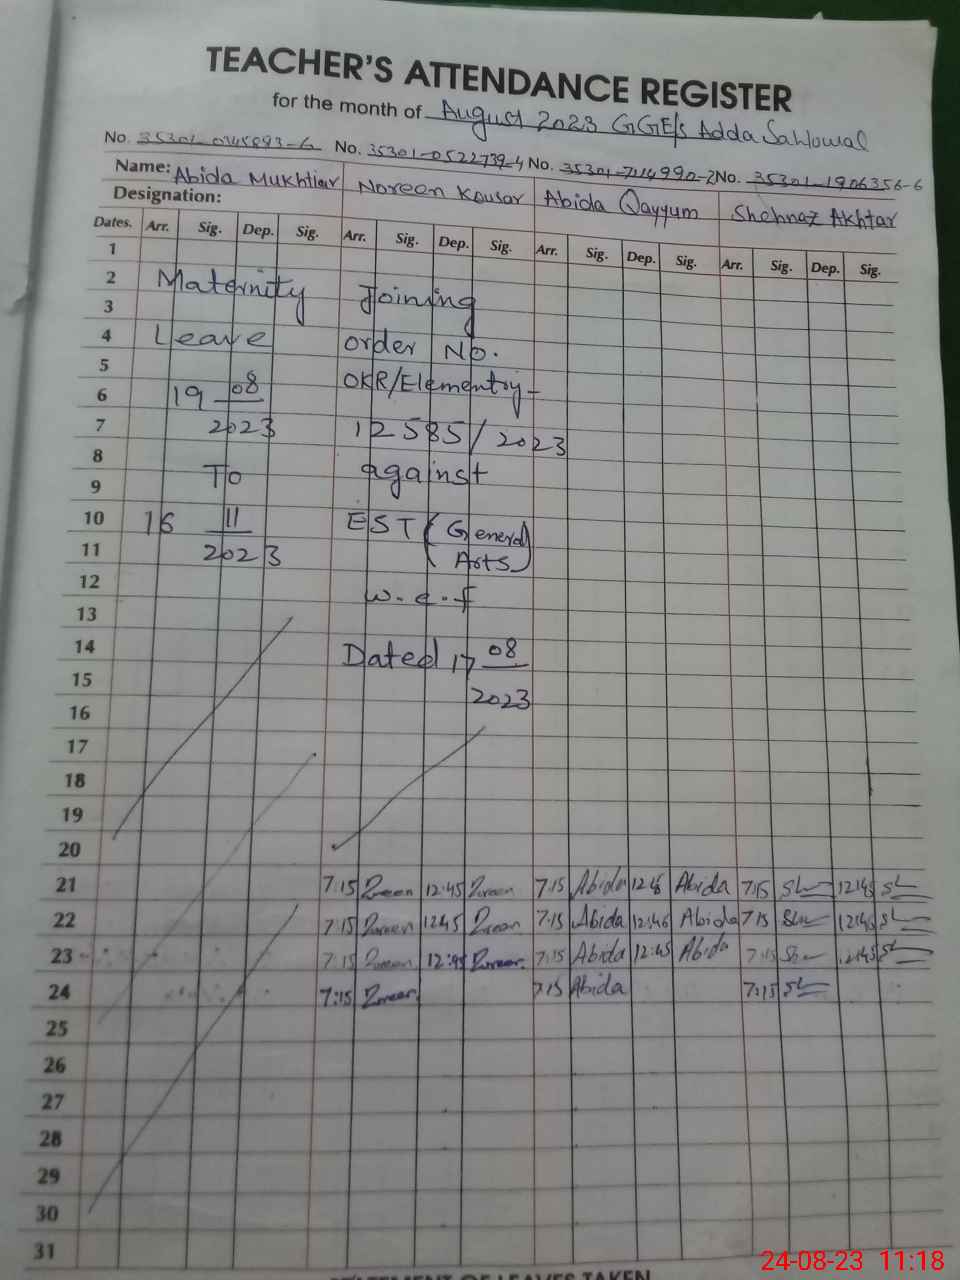 TEACHER'S ATTENDANCE REGISTER
for the month of August 2023 GGE/s Adda Sahlowal
No. No. 35301-0522739-4 No. No. 35301-1906356-6
Name: Abida Mukhtiar Noreen Kousar Abida Qayyum Shehnaz Akhtar
Designation:
Dates. Arr. Sig. Dep. Sig. Arr. Sig. Dep. Sig. Arr. Sig. Dep. Sig. Arr. Sig. Dep. Sig.
1
2 Maternity Joining
3
4 Leave order No.
5 OKR/Elementry-
6 19 08
7 2023 12585/2023
8
9 To against
10 16 11 EST (General
11 2023 Arts)
12 w.e.f
13
14 Dated 17 08
15 2023
16
17
18
19
20
21 7:15 12:45 7:15 Abida 12:45 Abida 7:15 12:45
22 7:15 1245 7:15 Abida 12:45 Abida 7:15 12:45
23 7:15 12:45 7:15 Abida 12:45 Abida 7:15 12:45
24 7:15 7:15 Abida 7:15
25
26
27
28
29
30
31
STATEMENT OF LEAVES TAKEN
24-08-23 11:18